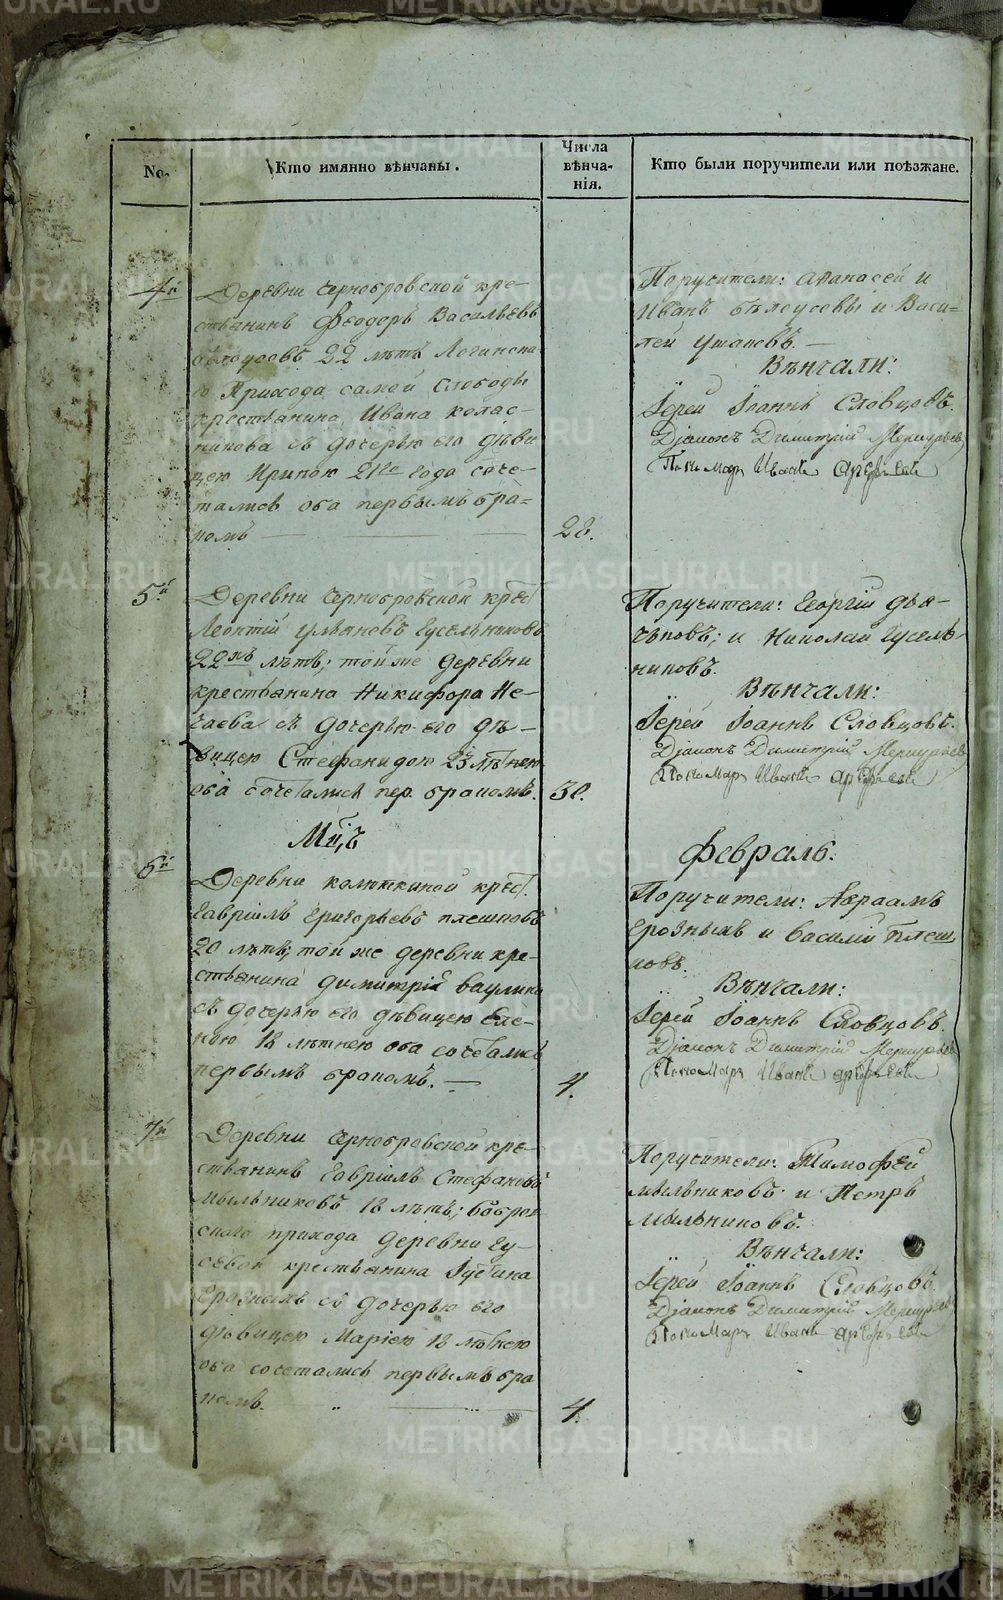 No.
Кто имянно вѣнчаны.
Числа
вѣнча-
нія.
Кто были поручители или поѣзжане.
4й
Деревни Чернобровской кре-
стьянинъ Ѳеодоръ Васильевъ
бѣлоусовъ 22 лѣтъ Логинска
го Прихода самой Слободы
крестьянина Ивана колас-
никова съ дочерью его дѣви
цею Ириною 21го года соче-
тались оба первымъ бра-
комъ
28.
Поручители: Афанасей и
Иванъ бѣлоусовы и Васи-
лей Ушаковъ.
Вѣнчали:
Іерей Іоаннъ Словцовъ.
Діаконъ Димитрій Меркурьевъ
Пономарь Иванъ
5й
Деревни Чернобровской крес
Леонтій Ульяновъ Гусельниковъ
22хъ лѣтъ; той же деревни
крестьянина Никифора Не-
чаева съ дочерью его дѣ-
вицею Стефанидою 23 лѣтнею
оба сочетались пер. бракомъ.
30.
Поручители: Георгій Дья-
чковъ; и Николай Гусель-
никовъ.
Вѣнчали:
Іерей Іоаннъ Словцовъ.
Діаконъ Димитрій Меркурьевъ
Пономарь Иванъ
Мц,ъ
Февраль.
6й
Деревни колюткиной крес.
Гавріилъ Григорьевъ плешковъ
20 лѣтъ; той же деревни кре-
стьянина Димитрія ваулина
съ дочерью его дѣвицею Еле-
ною 18 лѣтнею оба сочетались
первымъ бракомъ.
4.
Поручители: Авраамъ
Грозныхъ и Василій Плеш
ковъ.
Вѣнчали:
Іерей Іоаннъ Словцовъ.
Діаконъ Димитрій Меркурьевъ
Пономарь Иванъ
7й
Деревни Чернобровской кре-
стьянинъ Гавріилъ Стефановъ
Мыльниковъ 18 лѣтъ; бобров
скаго прихода деревни Гу-
севой крестьянина Іустина
Грозныхъ съ дочерью его
дѣвицею Маріею 18 лѣтнею
оба сочетались первымъ бра
комъ.
4.
Поручители: Тимофей
мыльниковъ и Петръ
мыльниковъ.
Вѣнчали:
Іерей Іоаннъ Словцовъ.
Діаконъ Димитрій Меркурьевъ
Пономарь Иванъ
METRIKI.GASO-URAL.RU